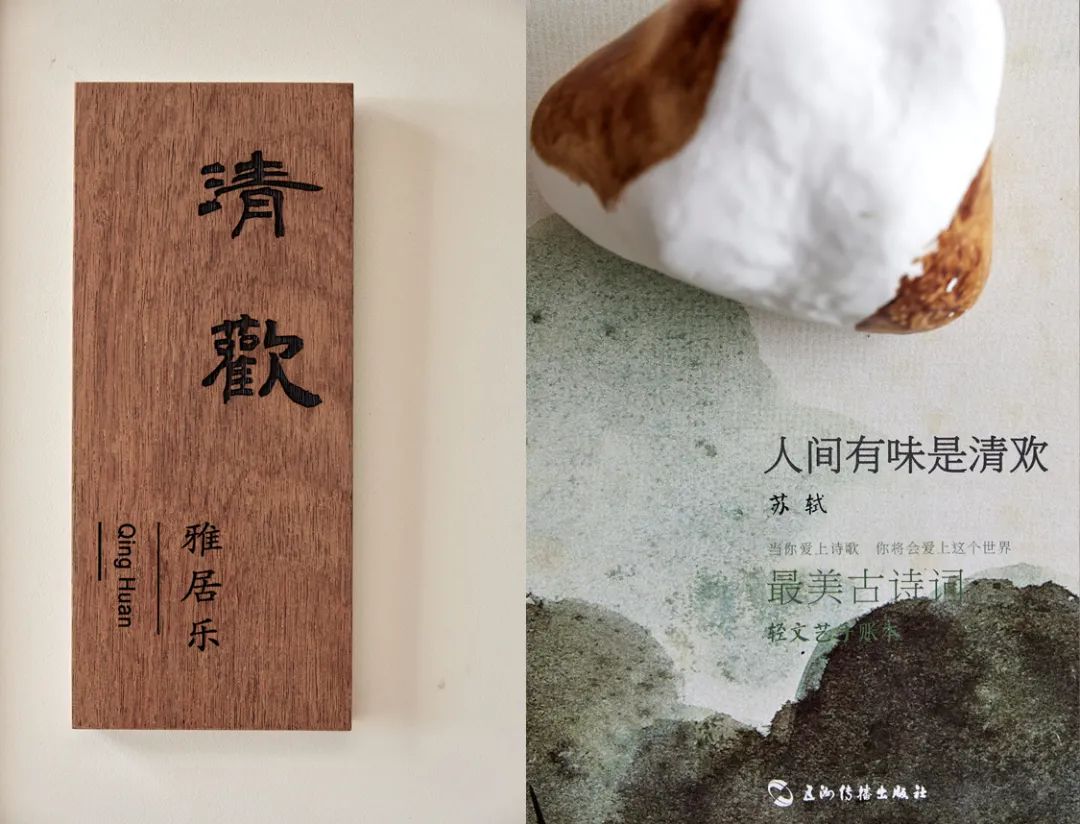 清歡
雅居乐
Qing Huan
人间有味是清欢
苏轼
当你爱上诗歌 你将会爱上这个世界
最美古诗词
轻文艺手账本
五洲传播出版社